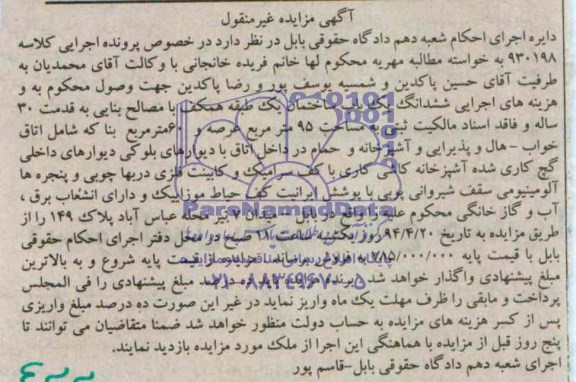 آگهی مزایده غیرمنقول
دایره اجرای احکام شعبه دهم دادگاه حقوقی بابل در نظر دارد در خصوص پرونده اجرایی کلاسه
۹۳۰۱۹۸ به خواسته مطالبه مهریه محکوم لها خانم فریده خانجانی با وکالت آقای محمدیان به
طرفیت آقای حسین پاکدین و شمسیه یوسف پور و رضا پاکدین جهت وصول محکوم به و
هزینه های اجرایی ششدانگ یک باب ساختمان یک طبقه همکف با مصالح بنایی به قدمت ۳۰
ساله و فاقد اسناد مالکیت ثبتی به مساحت ۹۵ متر مربع عرصه و ۶۰مترمربع بنا که شامل اتاق
خواب - هال و پذیرایی و آشپزخانه و حمام در داخل اتاق با دیوارهای بلوکی دیوارهای داخلی
گچ کاری شده آشپزخانه کاشی کاری با کف سرامیک و کابینت فلزی دربها چوبی و پنجره ها
آلومینیومی سقف شیروانی چوبی با پوشش ایرانیت کف حیاط موزاییک و دارای انشعاب برق ،
آب و گاز خانگی محکوم علیه را واقع در بابل محله عباس آباد پلاک ۱۴۹ را از
طریق مزایده به تاریخ ۹۴/۴/۲۰ روز یکشنبه ساعت ۱۱ صبح در محل دفتر اجرای احکام حقوقی
بابل با قیمت پایه ۷۸۵/۰۰۰/۰۰۰ به فروش برساند. مزایده از قیمت پایه شروع و به بالاترین
مبلغ پیشنهادی واگذار خواهد شد برنده مزایده ده درصد مبلغ پیشنهادی را فی المجلس
پرداخت و مابقی را ظرف مهلت یک ماه واریز نماید در غیر این صورت ده درصد مبلغ واریزی
پس از کسر هزینه های مزایده به حساب دولت منظور خواهد شد ضمنا متقاضیان می توانند تا
پنج روز قبل از مزایده با هماهنگی این اجرا از ملک مورد مزایده بازدید نمایند.
اجرای شعبه دهم دادگاه حقوقی بابل-قاسم پور
ParsNamadData
۰۲۱-۸۸۳۴۹۶۷۰-۵